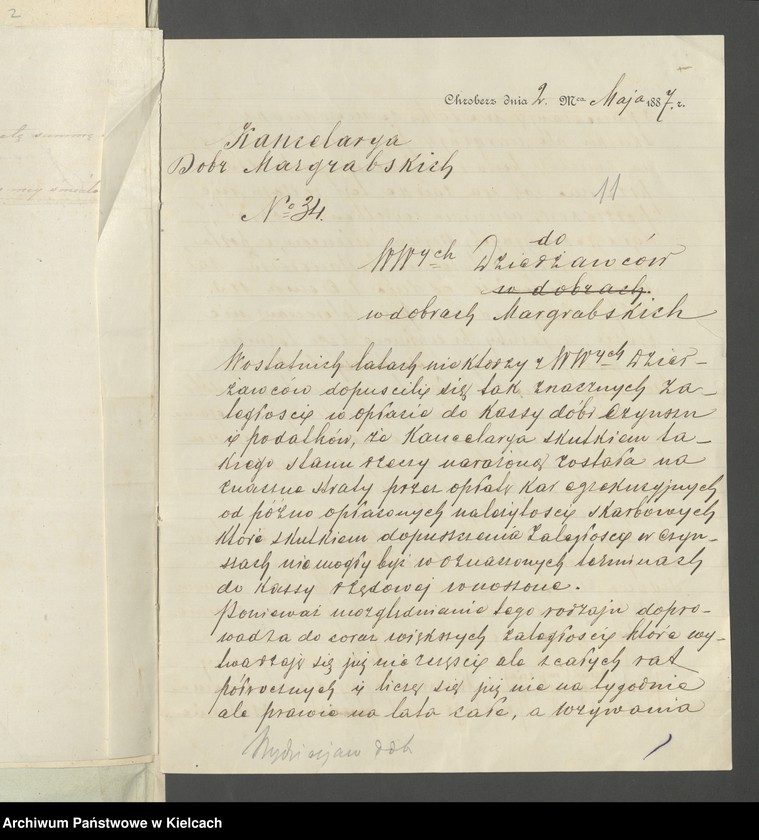 2
Chroberz dnia 2. Mca Maja 1887. r.
Kancelarya
Dobr Margrabskich
11
No 34.
do
WWych Dzierżawców
w dobrach.
w dobrach Margrabskich
W ostatnich latach niektorzy z WWych Dzier-
żawców dopuscili się tak znacznych Za-
ległosci w opłacie do Kassy dóbr Czynszu
i podatków, że Kancelarya skutkiem ta-
kiego stanu rzeczy narażoną została na
znaczne straty przez opłatę kar egzekucyjnych
od późno opłaconych należytości skarbowych
które skutkiem dopuszczenia zaległosci w czyn-
szach nie mogły być w oznaczonych terminach
do Kassy rządowej wnoszone.
Ponieważ uwzględnianie tego rodzaju dopro-
wadza do coraz większych zaległosci które wy-
twarzają się już nie z częsci ale z całych rat
półrocznych i liczą się już nie na tygodnie
ale prawie na lata całe, a wzywania
Archiwum Państwowe w Kielcach